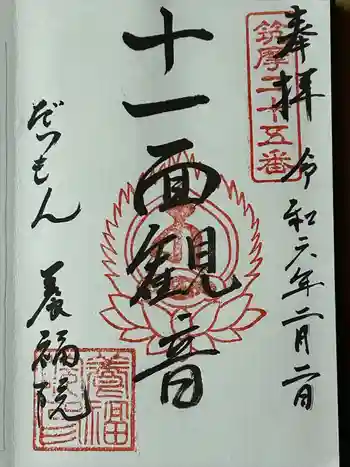 奉拝
令和六年二月二日
筑摩二十五番
十一面観音
だいもん
養福院